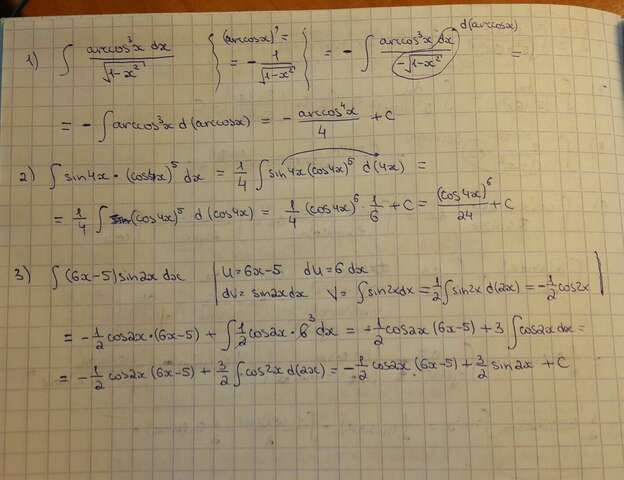 1) ∫ arccos³x dx / √(1-x²) { (arccosx)' = = - 1/√(1-x²) } = - ∫ arccos³x dx / -√(1-x²) d(arccosx) =
= - ∫ arccos³x d(arccosx) = - arccos⁴x / 4 + C
2) ∫ sin4x · (cos4x)⁵ dx = 1/4 ∫ sin4x (cos4x)⁵ d(4x) =
= 1/4 ∫ (cos4x)⁵ d(cos4x) = 1/4 (cos4x)⁶ · 1/6 + C = (cos4x)⁶ / 24 + C
3) ∫ (6x-5) sin2x dx | u = 6x-5 du = 6 dx
dv = sin2x dx v = ∫ sin2x dx = 1/2 ∫ sin2x d(2x) = - 1/2 cos2x |
= - 1/2 cos2x · (6x-5) + ∫ 1/2 cos2x · 6 ³ dx = - 1/2 cos2x (6x-5) + 3 ∫ cos2x dx =
= - 1/2 cos2x (6x-5) + 3/2 ∫ cos2x d(2x) = - 1/2 cos2x (6x-5) + 3/2 sin2x + C